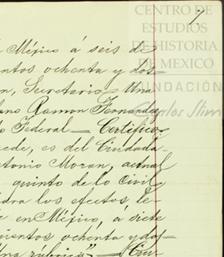 7
CENTRO DE
ESTUDIOS
DE HISTORIA
DE MEXICO
FUNDACIÓN
Carlos Slim
México á seis de
entos ochenta y dos
n, Secretario Una
Ramon Fernandez
o Federal — Certifico
ede, es del Ciudada
tonio Moran, actual
quinto de lo Civil
dra los efectos, le
en México, a siete
cientos ochenta y dos